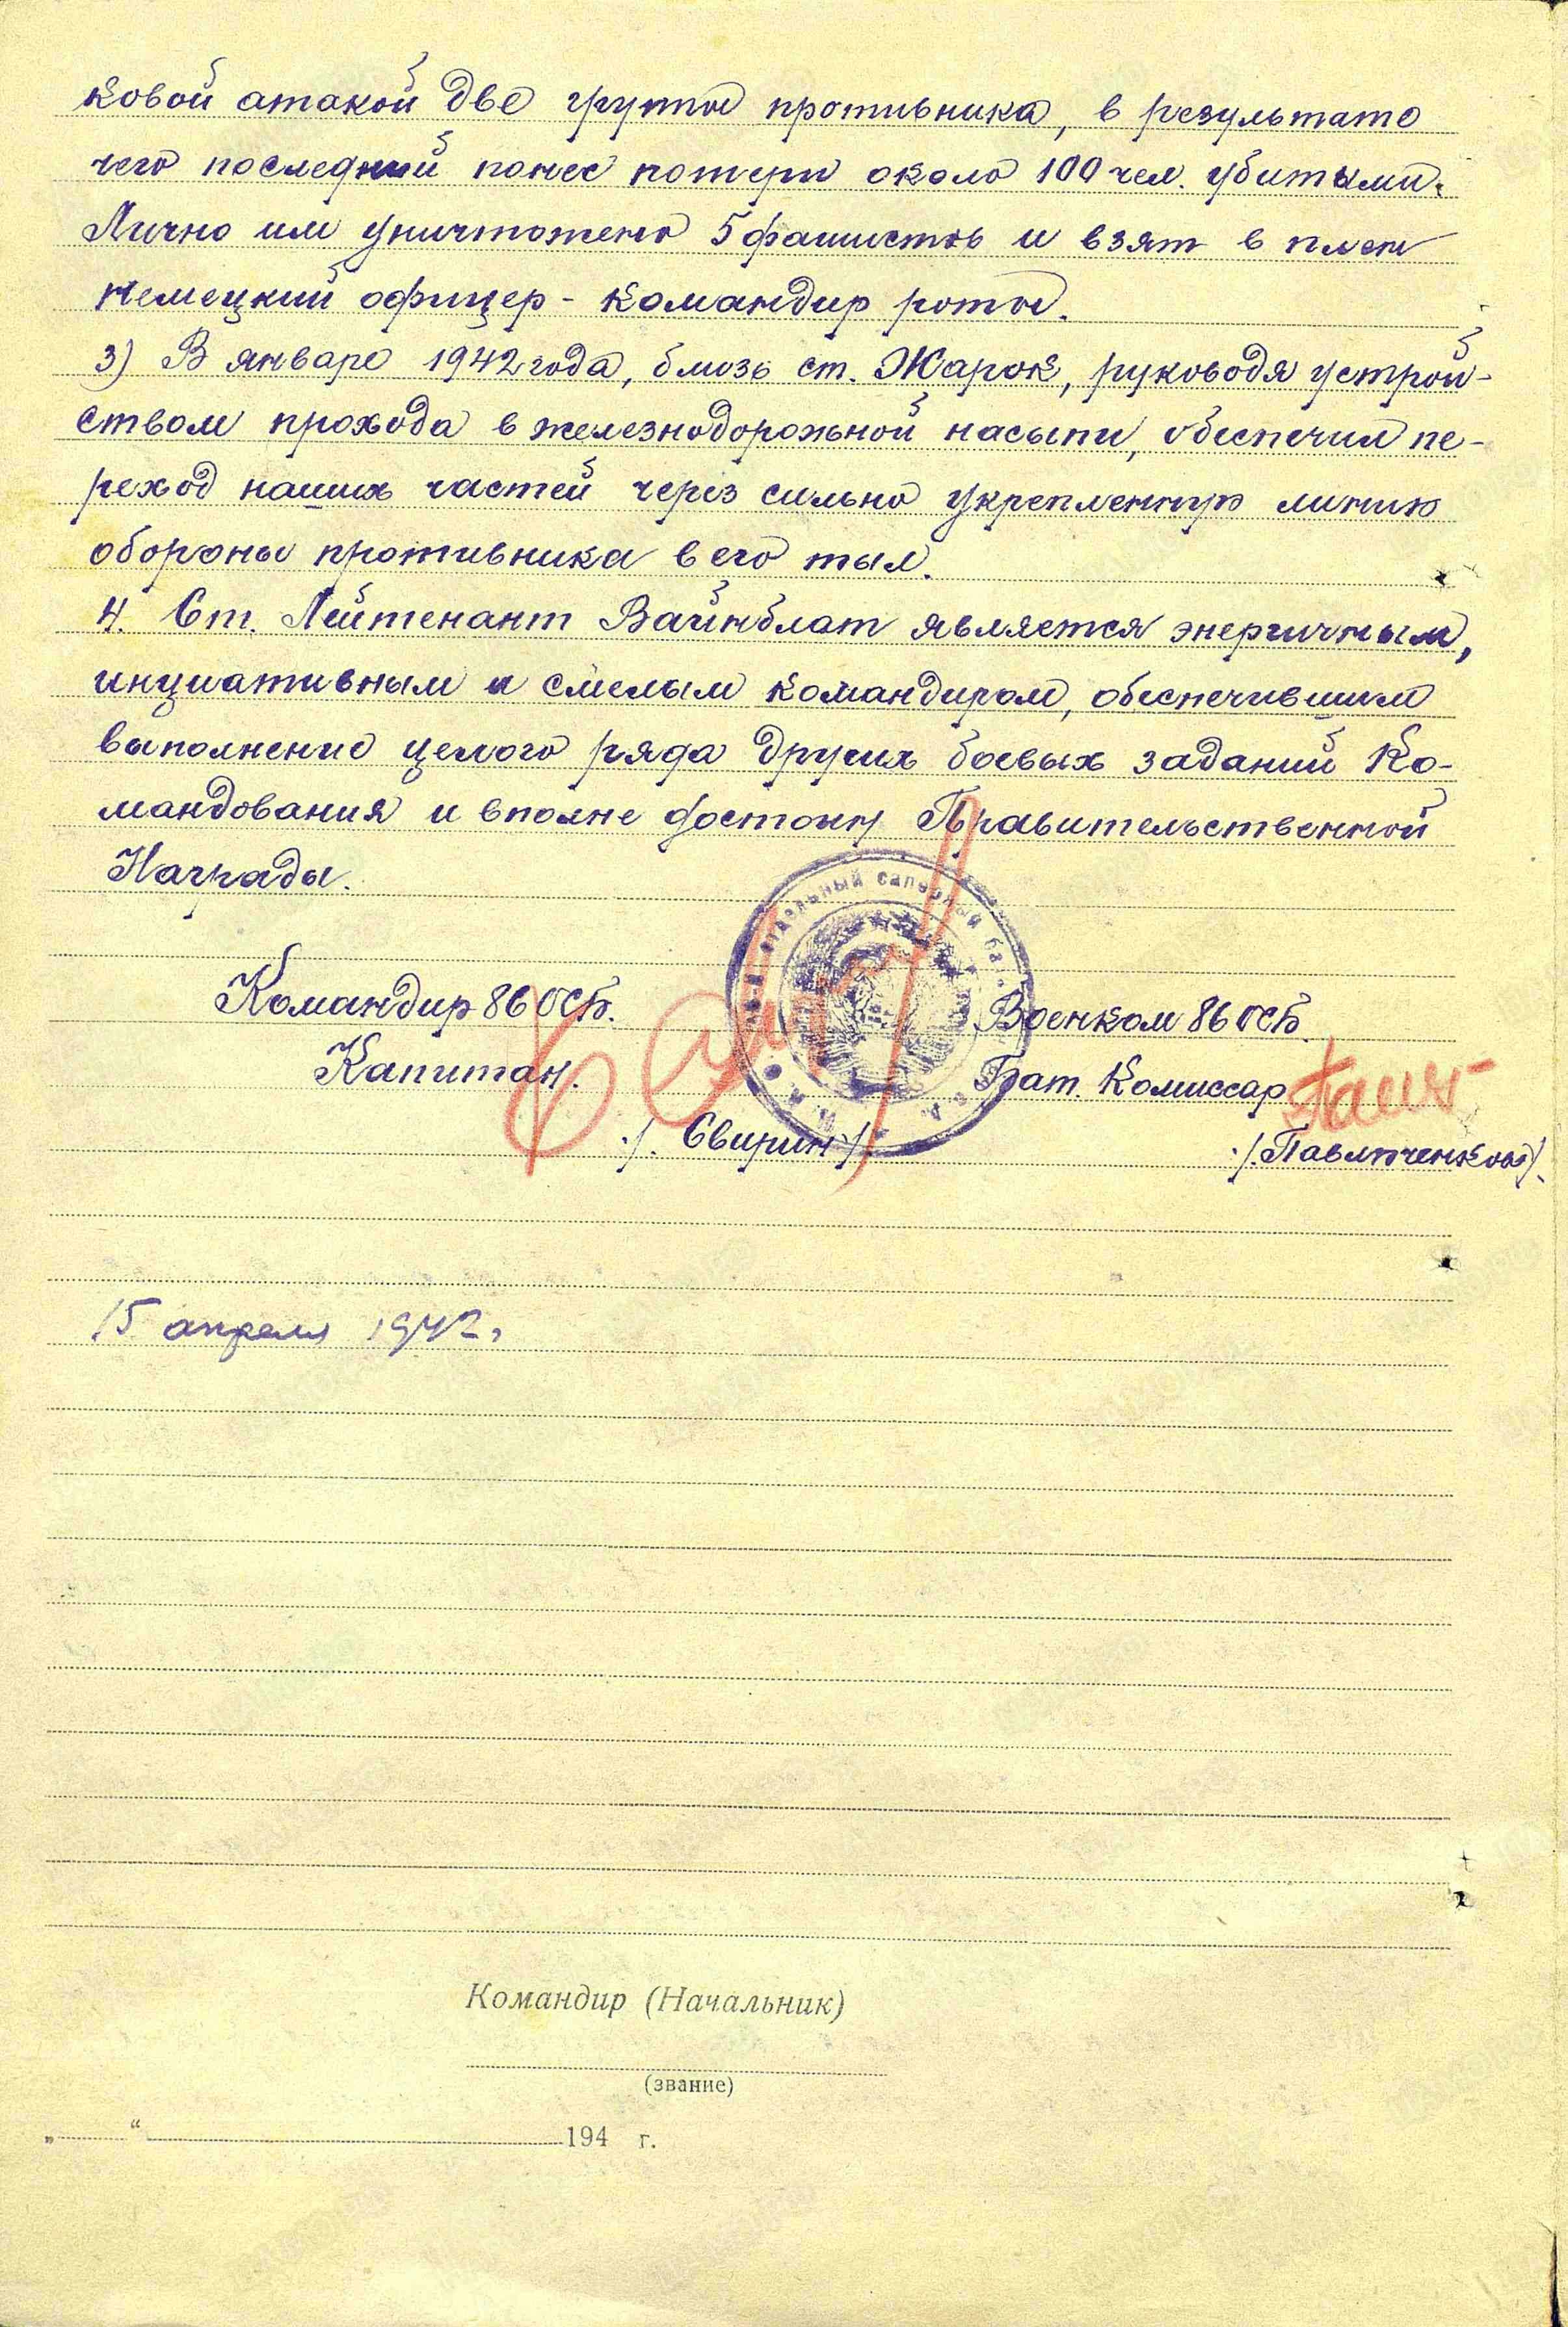 ковой атакой две группы противника, в результате
чего последний понес потери около 100 чел. убитыми.
Лично им уничтожено 5 фашистов и взят в плен
немецкий офицер - командир роты.
3) В январе 1942 года, близь ст. Жарок, руководя устрой-
ством прохода в железнодорожной насыпи, обеспечил пе-
реход наших частей через сильно укрепленную линию
обороны противника в его тыл.
4. Ст. Лейтенант Вайнблат является энергичным,
инциативным и смелым командиром, обеспечившим
выполнение целого ряда других боевых заданий Ко-
мандования и вполне достоин Правительственной
Награды.
отдельный саперный бат.
Командир 86 ОСБ.
Военком 86 ОСБ.
Капитан.
Бат. Комиссар
./. Свирин/.
./.Павлюченков/.
15 апреля 1942.
Командир (Начальник)
(звание)
„ “ 194 г.